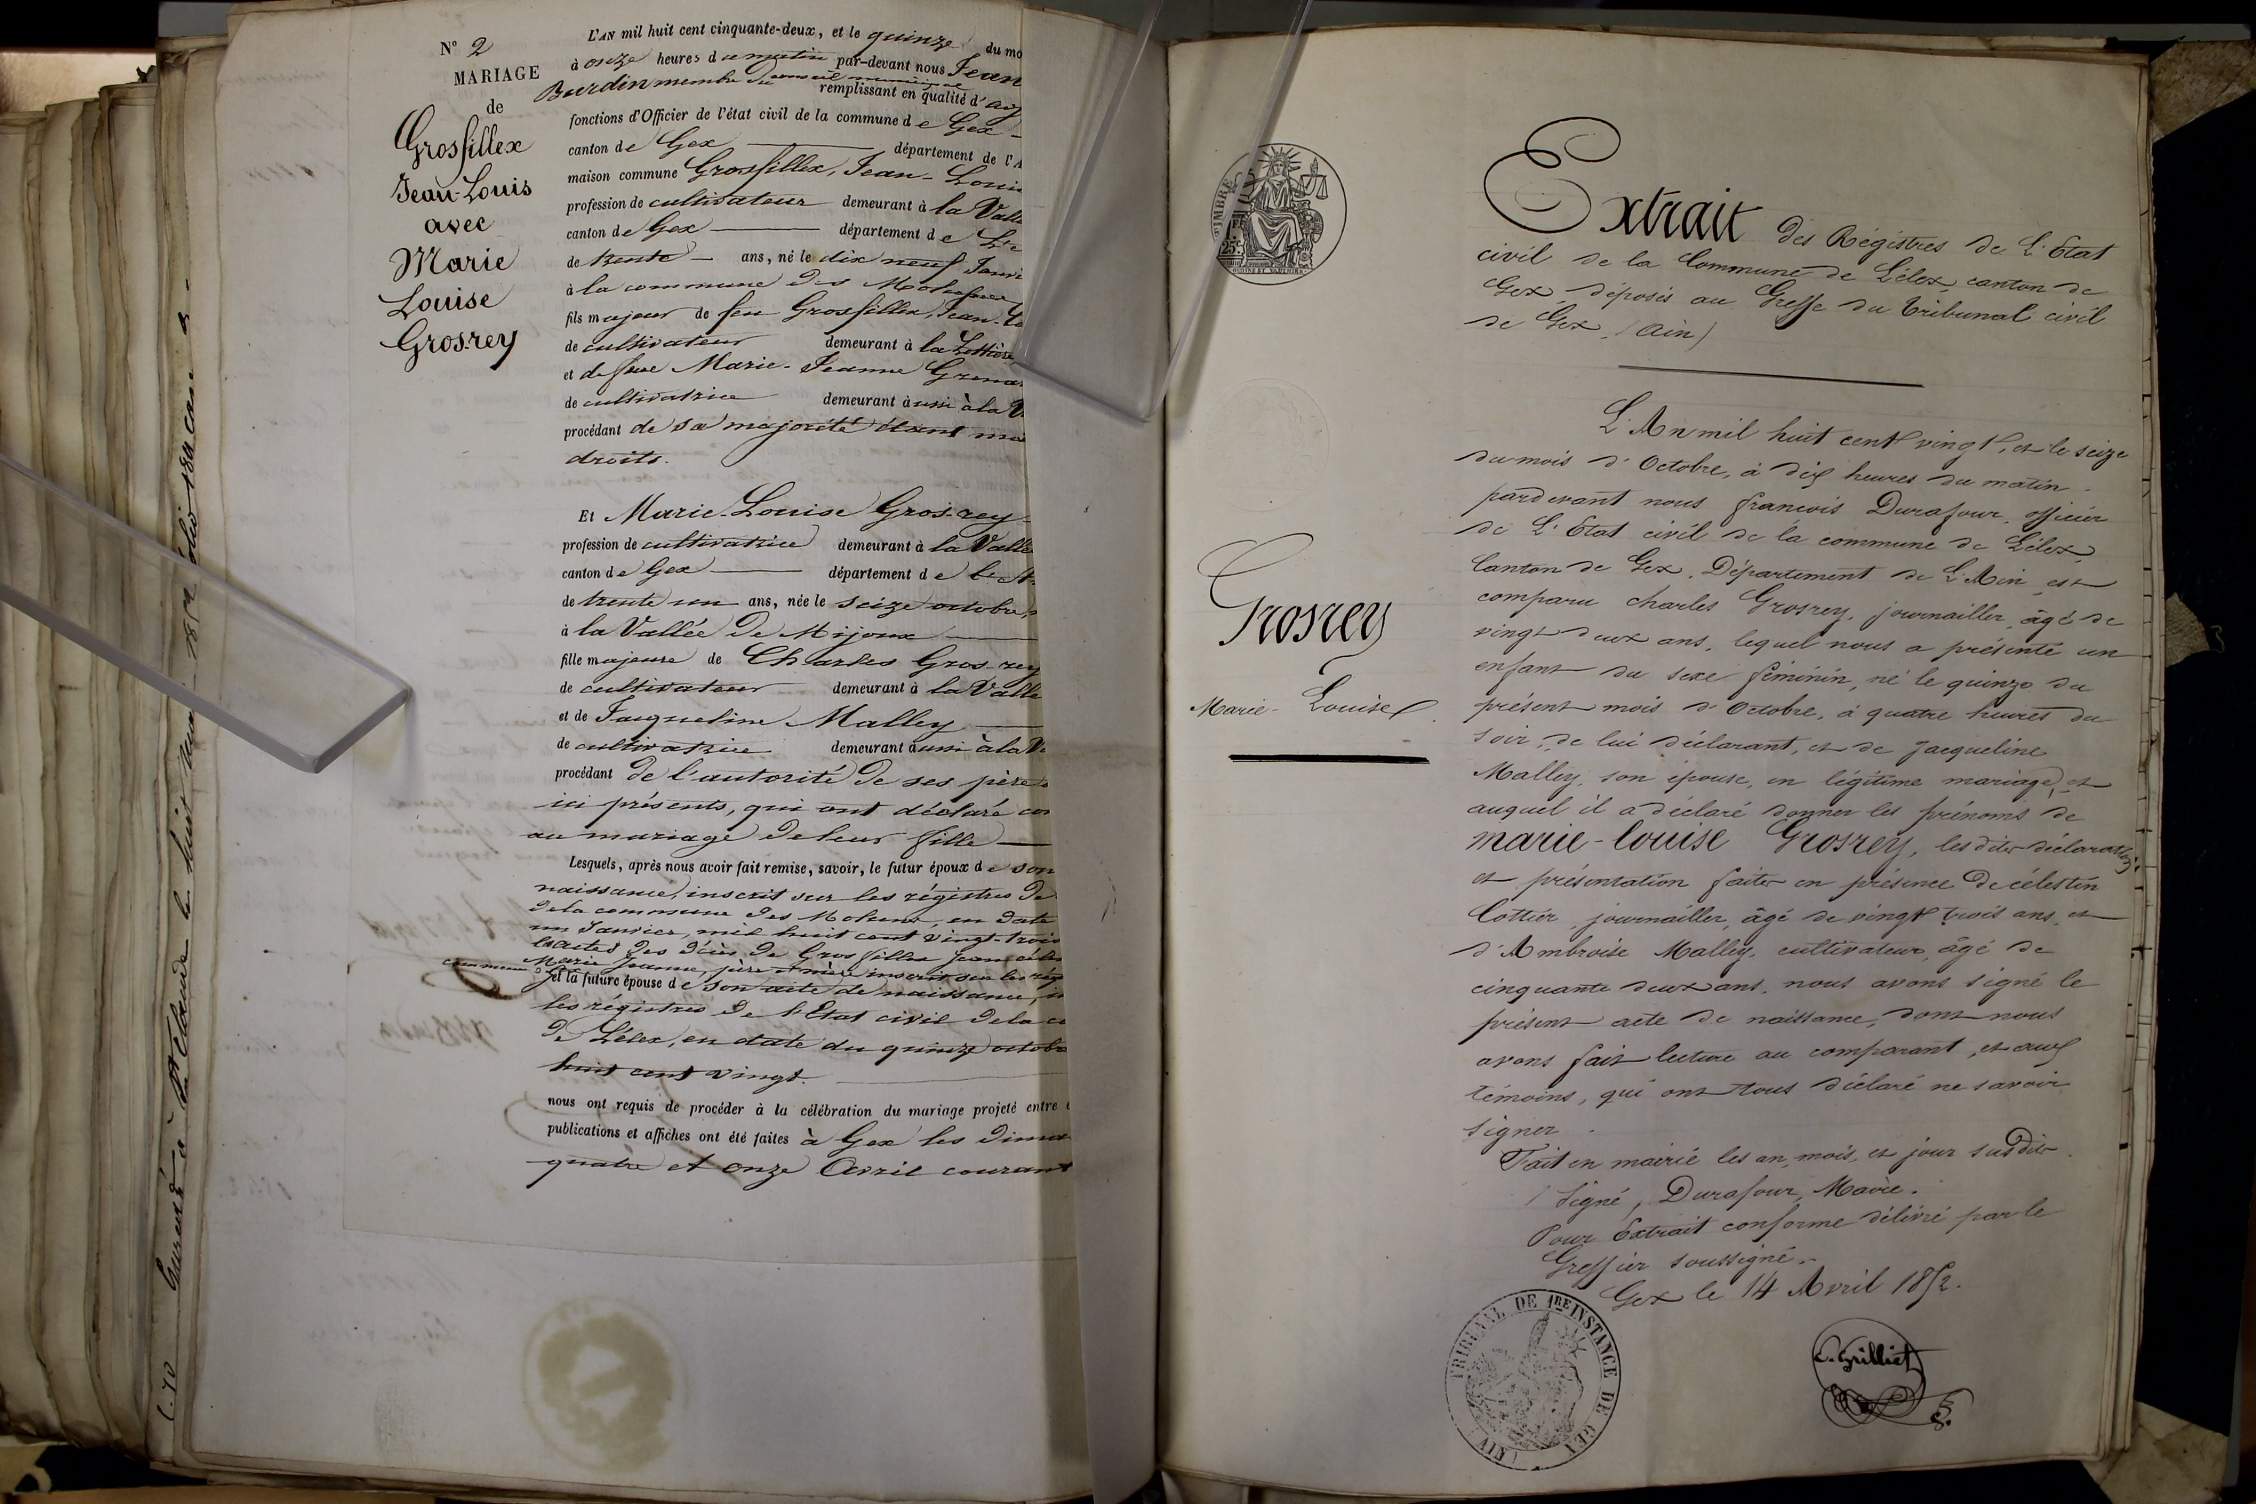 N° 2
MARIAGE
de
Grosfillex
Jean-Louis
avec
Marie
Louise
Grosrey
L'AN mil huit cent cinquante-deux, et le quinze du mo
à onze heures du matin par-devant nous Jean
Burdin membre du conseil municipal
remplissant en qualité d'
fonctions d'Officier de l'état civil de la commune de Gex
canton de Gex département de l'A
maison commune Grosfillex, Jean-Louis
profession de cultivateur demeurant à la Vallé
canton de Gex département de L'
de trente ans, né le dix neuf Janvi
à la commune des
fils majeur de feu Grosfillex, Jean-
de cultivateur demeurant à la
et de feue Marie-Jeanne
de cultivatrice demeurant aussi à la V
procédant de sa majorité étant
droits.
Et Marie-Louise Gros-rey
profession de cultivatrice demeurant à la Vallé
canton de Gex département de
de trente un ans, née le seize octobre,
à la Vallée de Mijoux
fille majeure de Charles Gros-rey
de cultivateur demeurant à la Vallé
et de Jacqueline Malley
de cultivatrice demeurant aussi à la V
procédant de l'autorité de ses père
ici présents, qui ont déclaré con
au mariage de leur fille
Lesquels, après nous avoir fait remise, savoir, le futur époux de son
naissance, inscrit sur les régistres de
de la commune des en date
un Janvier, mil huit cent vingt-trois
les actes des décès de Grosfillex Jean
Marie Jeanne, père et mère inscrit sur les rég
commune
et la future épouse de son acte de naissance, in
les régistres de l'Etat civil de la co
de Lélex, en date du quinze octobre
huit cent vingt.
nous ont requis de procéder à la célébration du mariage projeté entre e
publications et affiches ont été faites à Gex les diman
quatre et onze Avril courant
TIMBRE
25c
Extrait des Régistres de L'Etat
civil de la Commune de Lélex, canton de
Gex, déposés au Greffe du tribunal civil
de Gex (Ain)
Grosrey
Marie-Louise
L'An mil huit cent vingt, et le seize
du mois d'Octobre, à dix heures du matin
pardevant nous françois Durafour, officier
de L'Etat civil de la commune de Lélex,
Canton de Gex, Département de L'Ain est
comparu charles Grosrey, journailler, âgé de
vingt deux ans, lequel nous a présenté un
enfant du sexe féminin, né le quinze du
présent mois d'Octobre, à quatre heures du
soir, de lui déclarant, et de Jacqueline
Malley, son épouse, en légitime mariage, et
auquel il a déclaré donner les prénoms de
marie-louise Grosrey, lesdites déclaration
et présentation faites en présence de célestin
Cottier, journailler, âgé de vingt trois ans, et
d'Ambroise Malley, cultivateur, âgé de
cinquante deux ans. nous avons signé le
présent acte de naissance, dont nous
avons fait lecture au comparant, et aux
témoins, qui ont tous déclaré ne savoir
signer.
Fait en mairie les an, mois, et jour susdits.
Signé, Durafour, Maire.
Pour Extrait conforme délivré par le
Greffier soussigné.
Gex le 14 Avril 1852.
TRIBUNAL DE 1RE INSTANCE DE GEX (AIN)